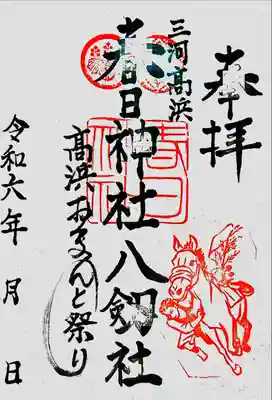 奉拝
三河高浜
春日神社八剱社
高浜おまんと祭り
令和六年 月 日
春日神社